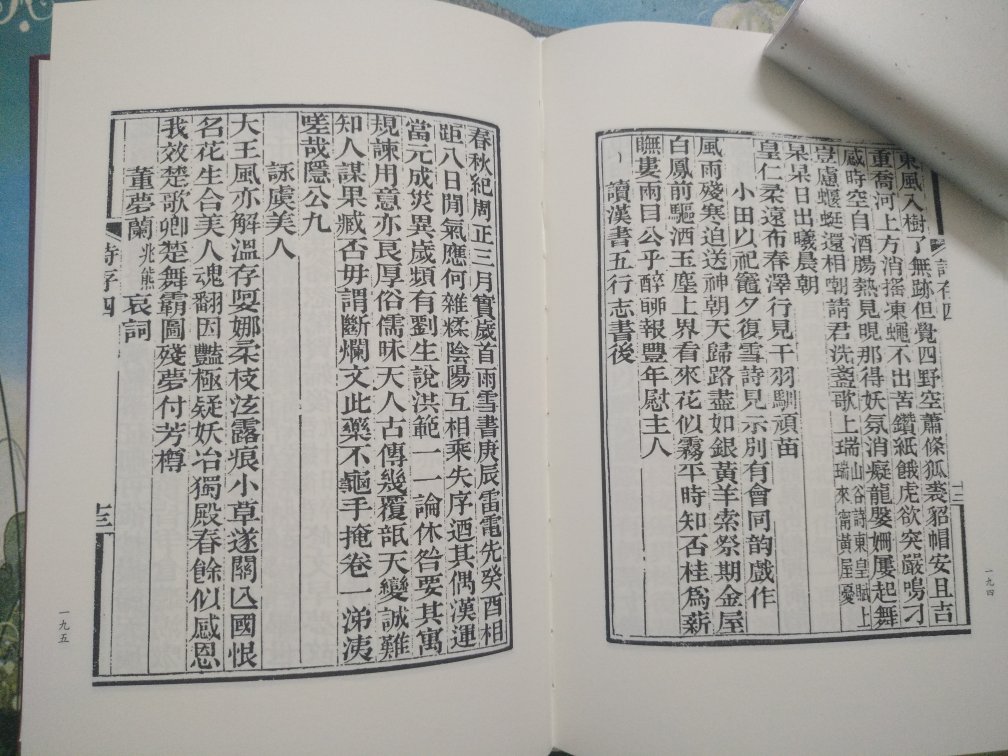 東風入樹了無跡但覺四野空蕭條狐裘貂帽安且吉
重喬河上方消搖凍蠅不出苦鑽紙餓虎欲突嚴鳴刁
感時空自酒腸熱見晛那得妖氛消癡龍媻姍屢起舞
豈慮蝘蜓還相嘲請君洗盞歌上瑞山谷詩東皇賦上瑞來甯黃屋憂
杲杲日出曦晨朝
皇仁柔遠布春澤行見干羽馴頑苗
小田以祀竈夕復雪詩見示別有會同韵戲作
風雨殘寒迫送神朝天歸路盡如銀黃羊索祭期金屋
白鳳前驅洒玉塵上界看來花似霧平時知否桂爲薪
瞴婁兩目公乎醉歸報豐年慰主人
讀漢書五行志書後
詩存四
十二
一九四
春秋紀周正三月實歲首雨雪書庚辰雷電先癸酉相
距八日閒氣應何雜糅陰陽互相乘失序迺其偶漢運
當元成災異歲頻有劉生說洪範一一論休咎要其寓
規諫用意亦良厚俗儒昧天人古傳幾覆瓿天變誠難
知人謀果臧否毋謂斷爛文此藥不龜手掩卷一涕洟
嗟哉隱公九
詠虞美人
大王風亦解溫存娿娜柔枝泫露痕小草遂關亾國恨
名花生合美人魂翻因豔極疑妖冶獨殿春餘似感恩
我效楚歌卿楚舞霸圖殘夢付芳樽
董夢蘭兆熊哀詞
詩存四
十三
一九五